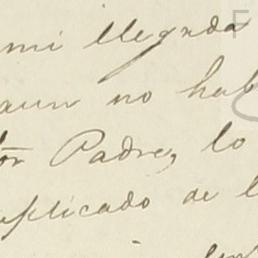 mi llegada
aun no hab
Padre, lo
uplicado de l